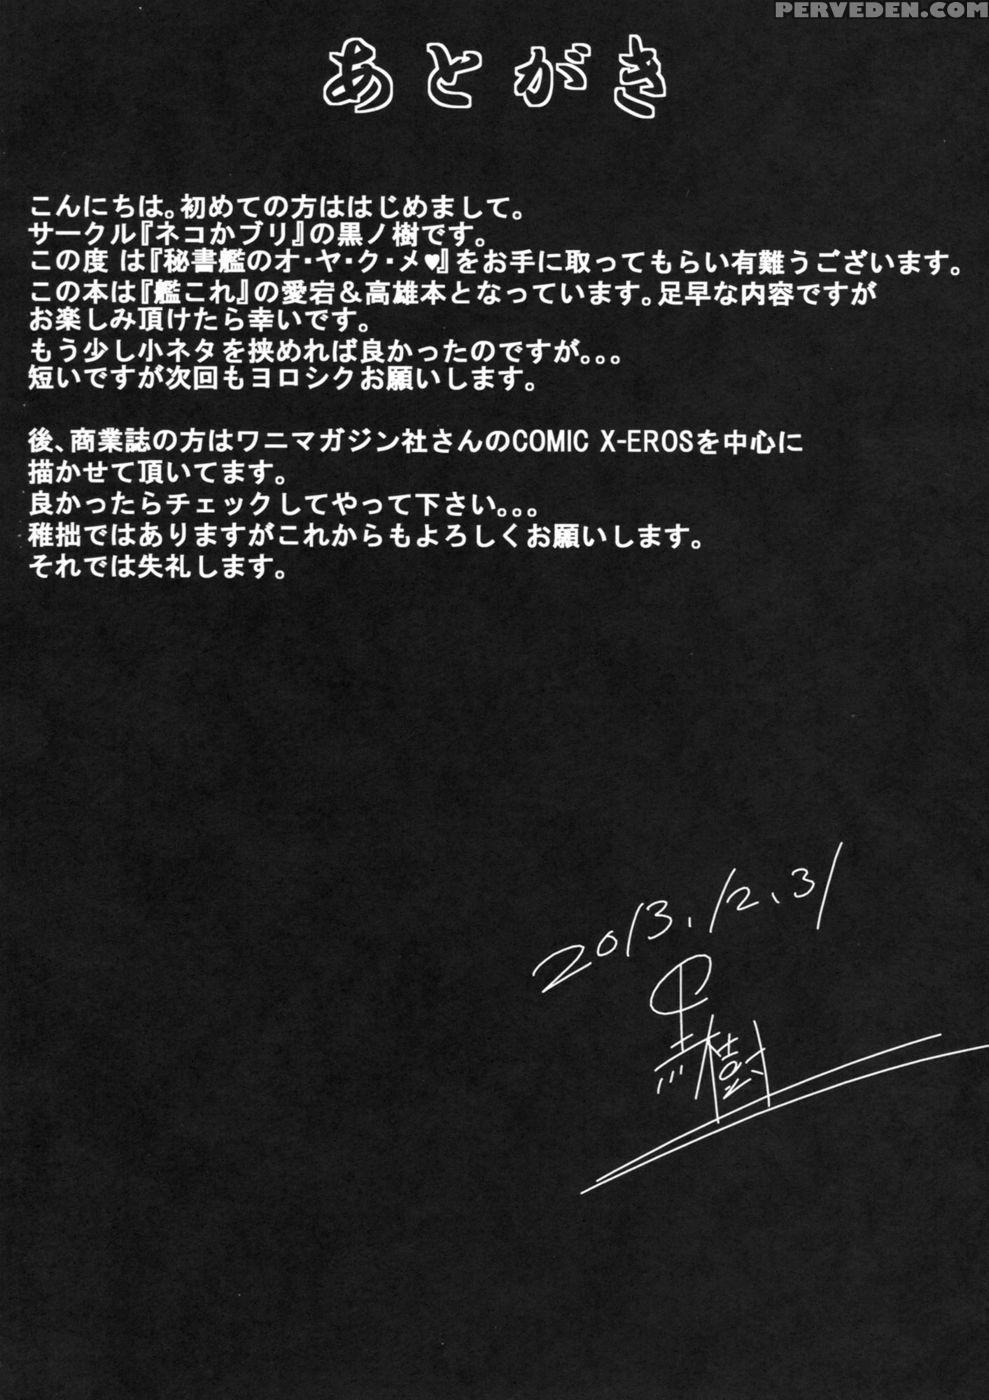 PERVEDEN.COM
あとがき
こんにちは。初めての方ははじめまして。
サークル『ネコかブリ』の黒ノ樹です。
この度 は『秘書艦のオ・ヤ・ク・メ♥』をお手に取ってもらい有難うございます。
この本は『艦これ』の愛宕＆高雄本となっています。足早な内容ですが
お楽しみ頂けたら幸いです。
もう少し小ネタを挟めれば良かったのですが。。。
短いですが次回もヨロシクお願いします。
後、商業誌の方はワニマガジン社さんのCOMIC X-EROSを中心に
描かせて頂いてます。
良かったらチェックしてやって下さい。。。
稚拙ではありますがこれからもよろしくお願いします。
それでは失礼します。
2013.12.31
黒樹